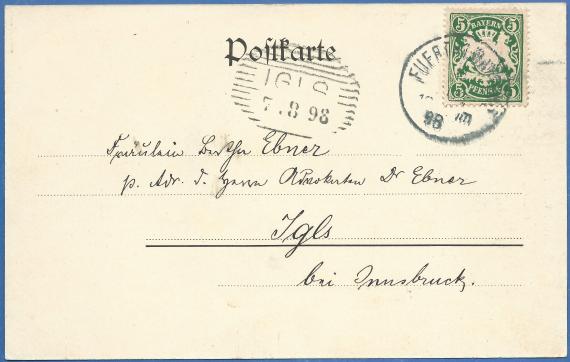 Postkarte
5 BAYERN 5
PFENNIG
FUERT
98
IGLS
7.8 98
Fräulein Bertha Ebner
p. Adr. d. Herrn Advokaten Dr Ebner
Igls
bei Innsbruck.